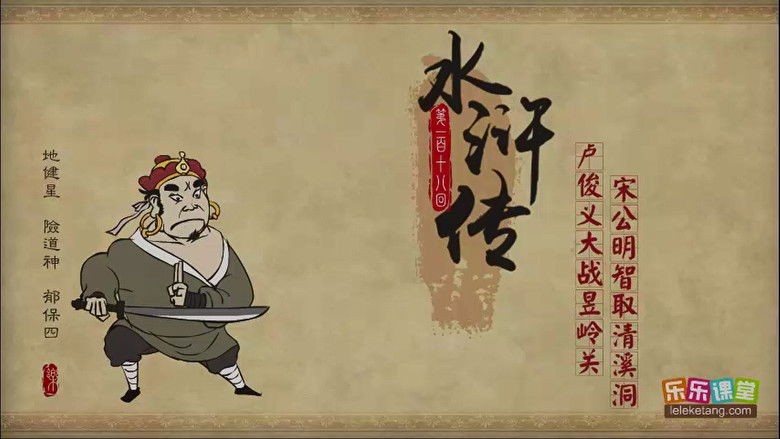 水浒传
第一百十八回
卢俊义大战昱岭关
宋公明智取清溪洞
地健星 險道神 郁保四
乐乐课堂
leleketang.com